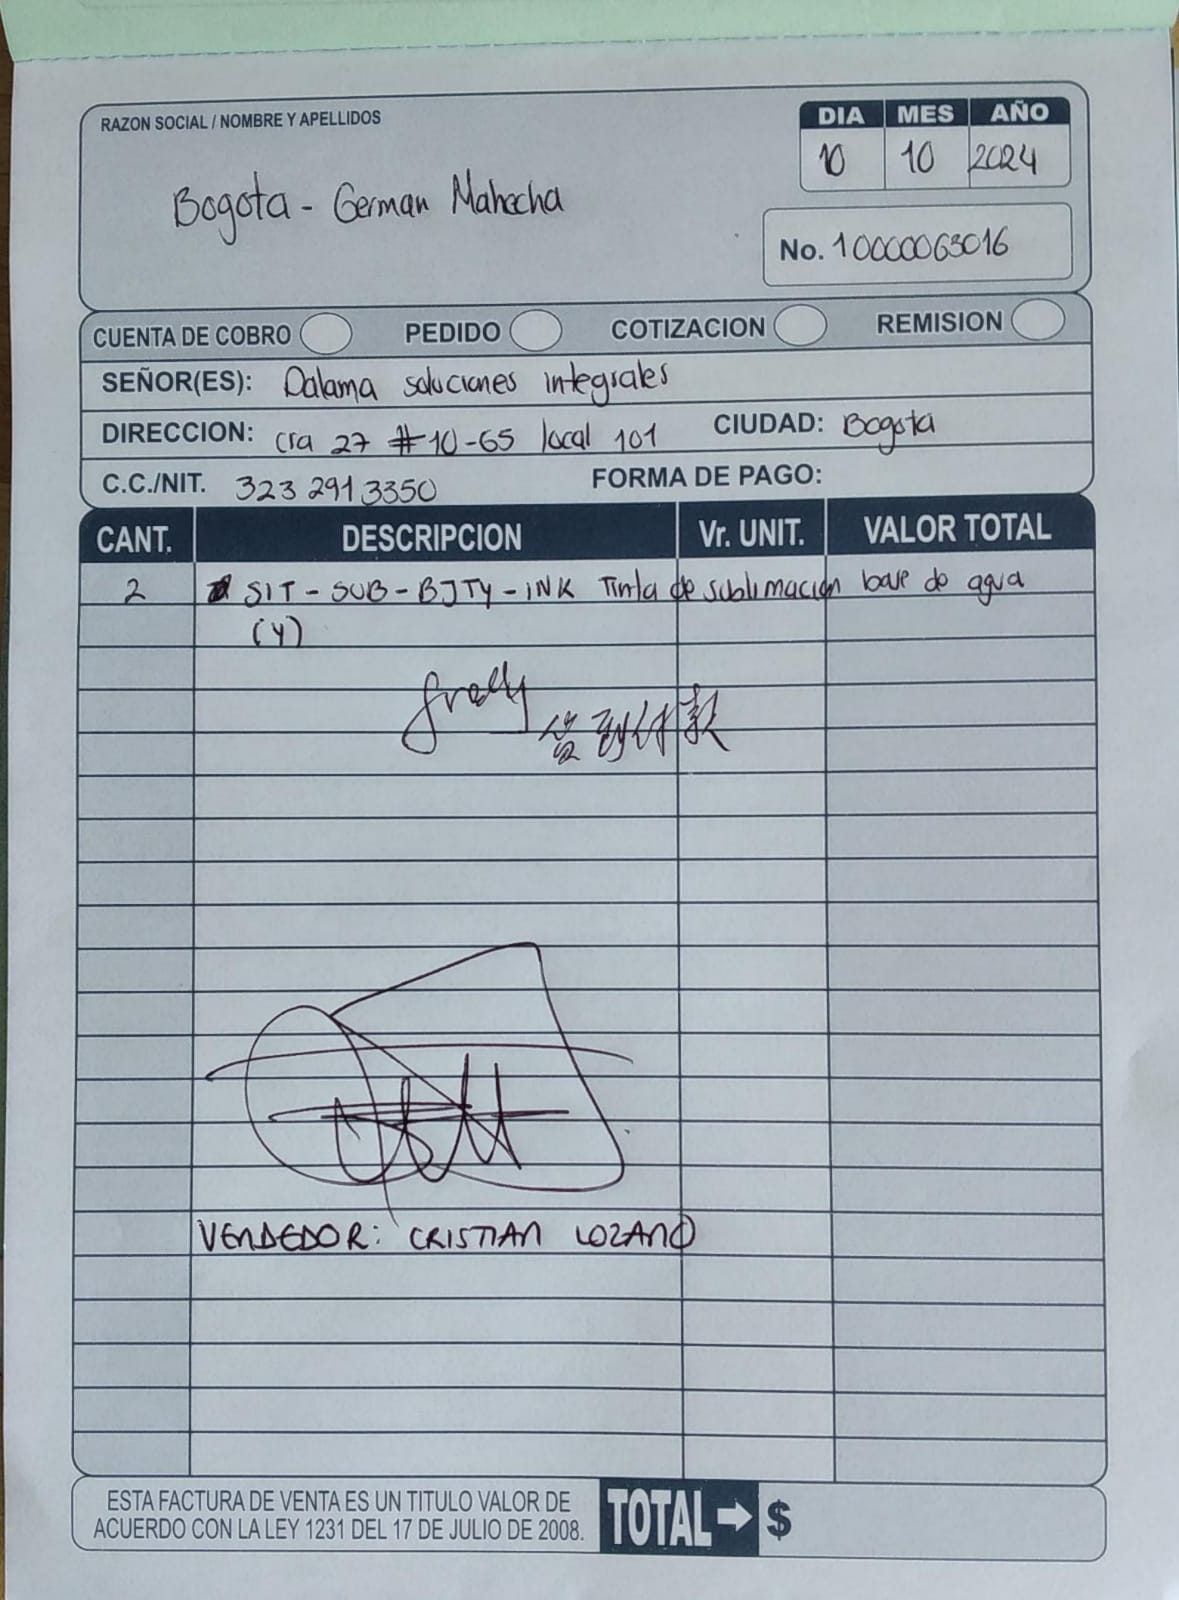 RAZON SOCIAL / NOMBRE Y APELLIDOS
DIA MES AÑO
10 10 2024
Bogota - German Mahecha
No. 10000063016
CUENTA DE COBRO PEDIDO COTIZACION REMISION
SEÑOR(ES): Dalama soluciones integrales
DIRECCION: cra 27 #10-65 local 101 CIUDAD: Bogota
C.C./NIT. 323 291 3350 FORMA DE PAGO:
CANT. DESCRIPCION Vr. UNIT. VALOR TOTAL
2 SIT - SUB - BJTY - INK Tinta de sublimación base de agua
(Y)
签到付款
VENDEDOR: CRISTIAN LOZANO
ESTA FACTURA DE VENTA ES UN TITULO VALOR DE
ACUERDO CON LA LEY 1231 DEL 17 DE JULIO DE 2008.
TOTAL → $